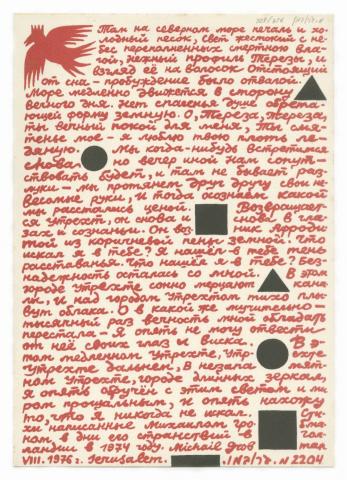 Там на северном море печаль и хо-
лодный песок, Свет жестокий с не-
бес переполненных смертною вла-
гой, Нежный профиль Терезы, и
взгляд её на волосок Отстоящий
от сна – пробуждение было отвагой.
Море медленно движется в сторону
вечного дня. Нет спасенья душе обрета-
ющей форму земную. О, Тереза, Тереза,
ты вечный покой для меня, Ты смя-
тенье моё – я люблю твою плоть ле-
дяную. Мы когда-нибудь встретимся
снова но вечер иной Нам сопут-
ствовать будет, и там не бывает раз-
луки – мы протянем друг другу свои не-
весомые руки, И тогда осознаем какой
мы расстались ценой. Возвращает-
ся Утрехт, он снова и снова в гла-
зах и сознаньи. Он воз- ник Афроди-
той из коричневой пены земной. Что
искал я в тебе? Я нашёл в тебе тень
расставанья. Что нашёл я в тебе? Без-
надежность осталась со мной. В этом
городе Утрехте сонно мерцают кана-
лы, И над городом Утрехтом тихо плы-
вут облака. О в какой же мучительно –
тысячный раз вечность мной обладать
перестала – Я опять не могу отвести
от неё своих глаз и виска. В э-
том медленном Утрехте, Утр- ехте
Утрехте дальнем, В незапа мят-
ном Утрехте, городе длинных зеркал,
Я опять обручён с этим светом и ми-
ром прощальным, И опять нахожу
то, что я никогда не искал. Сти-
хи написанные Михаилом Гро бма-
ном, в дни его странствий в Гол-
ландии в 1974 году. Michail Grob man
VIII. 1976 г. Jerusalem. № 2204